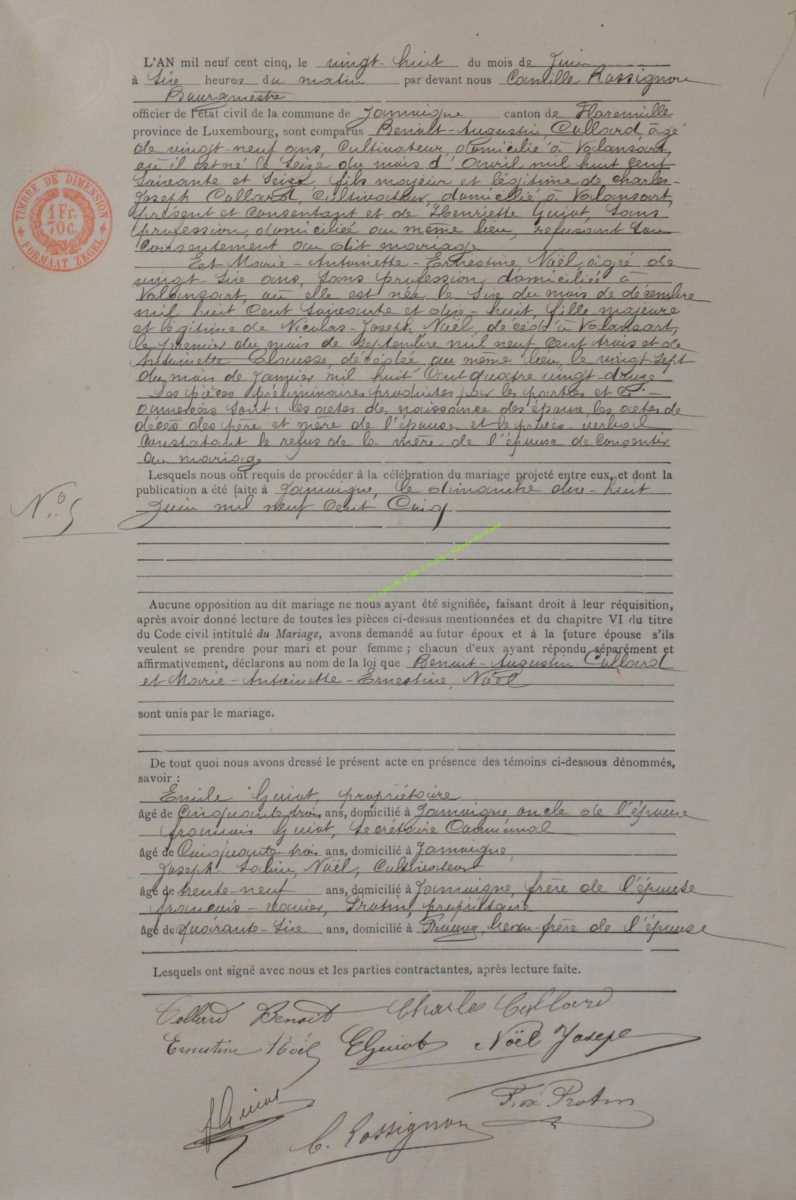 L'AN mil neuf cent cinq, le vingt-huit du mois de Juin
à six heures du matin par devant nous Camille Rossignon
Bourgmestre
officier de l'état civil de la commune de Jamoigne canton de Florenville
province de Luxembourg, sont comparus Benoit-Augustin Collard, âgé
de vingt-neuf ans, Cultivateur, domicilié à Valansart,
où il est né le seize du mois d'Avril mil huit cent
soixante et seize, fils majeur et légitime de Charles-
Joseph Collard, Cultivateur, domicilié à Valansart,
présent et consentant et de Henriette Guiot, sans
profession, domiciliée au même lieu, refusant son
consentement au dit mariage
Et Marie-Antoinette-Ernestine Noël âgée de
vingt-six ans, sans profession, domiciliée à
Valansart, où elle est née le six du mois de décembre
mil huit cent soixante et dix-huit, fille majeure
et légitime de Nicolas-Joseph Noël, décédé à Valansart,
le premier du mois de Septembre mil neuf cent trois et de
Antoinette, décédée au même lieu, le vingt sept
du mois de Janvier mil huit cent quatre vingt-douze
Les pièces préliminaires produites par les parties et
annexées sont: les actes de naissance des époux, les actes de
décès des père et mère de l'épouse et le procès verbal
constatant le refus de la mère de l'époux de consentir
au mariage
Lesquels nous ont requis de procéder à la célébration du mariage projeté entre eux, et dont la
publication a été faite à Jamoigne, le dimanche dix-huit
Juin mil neuf cent cinq
N° 5
Aucune opposition au dit mariage ne nous ayant été signifiée, faisant droit à leur réquisition,
après avoir donné lecture de toutes les pièces ci-dessus mentionnées et du chapitre VI du titre
du Code civil intitulé du Mariage, avons demandé au futur époux et à la future épouse s'ils
veulent se prendre pour mari et pour femme ; chacun d'eux ayant répondu séparément et
affirmativement, déclarons au nom de la loi que Benoit-Augustin Collard
et Marie-Antoinette-Ernestine Noël
sont unis par le mariage.
De tout quoi nous avons dressé le présent acte en présence des témoins ci-dessous dénommés,
savoir :
Emile Guiot, propriétaire
âgé de Cinquante trois ans, domicilié à Jamoigne oncle de l'époux
François Guiot, Secrétaire Communal
âgé de Cinquante trois ans, domicilié à Jamoigne,
Joseph Noël, Cultivateur
âgé de trente-neuf ans, domicilié à Jamoigne, frère de l'épouse
François-Xavier, Protin, propriétaire
âgé de quarante-six ans, domicilié à beau-frère de l'épouse
Lesquels ont signé avec nous et les parties contractantes, après lecture faite.
Collard Benoit Charles Collard
Ernestine Noël EGuiot Noël Joseph
fGuiot F. x. Protin
C. Rossignon
TIMBRE DE DIMENSION
1 Fr.
70 c.
FORMAAT ZEGEL